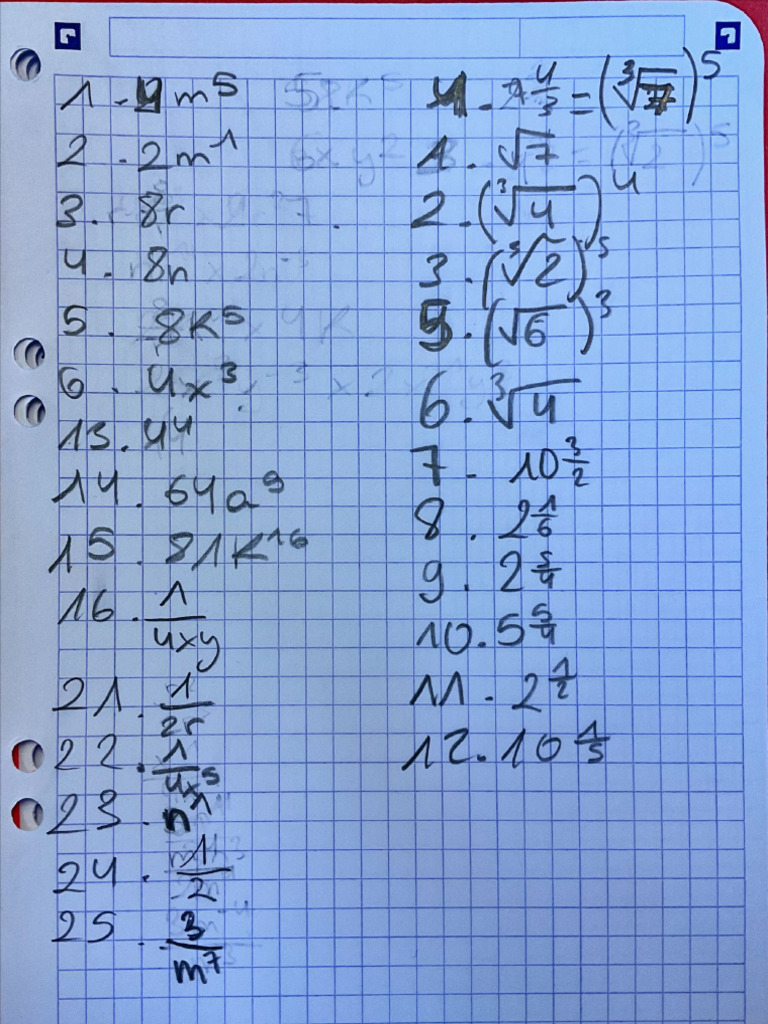 1. 4m⁵
2. 2m¹
3. 8r
4. 8n
5. 8k⁵
6. 4x³
13. 4⁴
14. 64a⁹
15. 81k¹⁶
16. 1/4xy
21. 1/2r
22. 1/4x⁵
23. n¹
24. 1/2
25. 3/m⁷
4. 7^(4/3) = (∛7)⁵
1. √7
2. (∛4)⁴
3. (∛2)⁵
5. (√6)³
6. ∛4
7. 10^(3/2)
8. 2^(1/6)
9. 2^(5/4)
10. 5^(5/4)
11. 2^(1/2)
12. 10^(1/5)